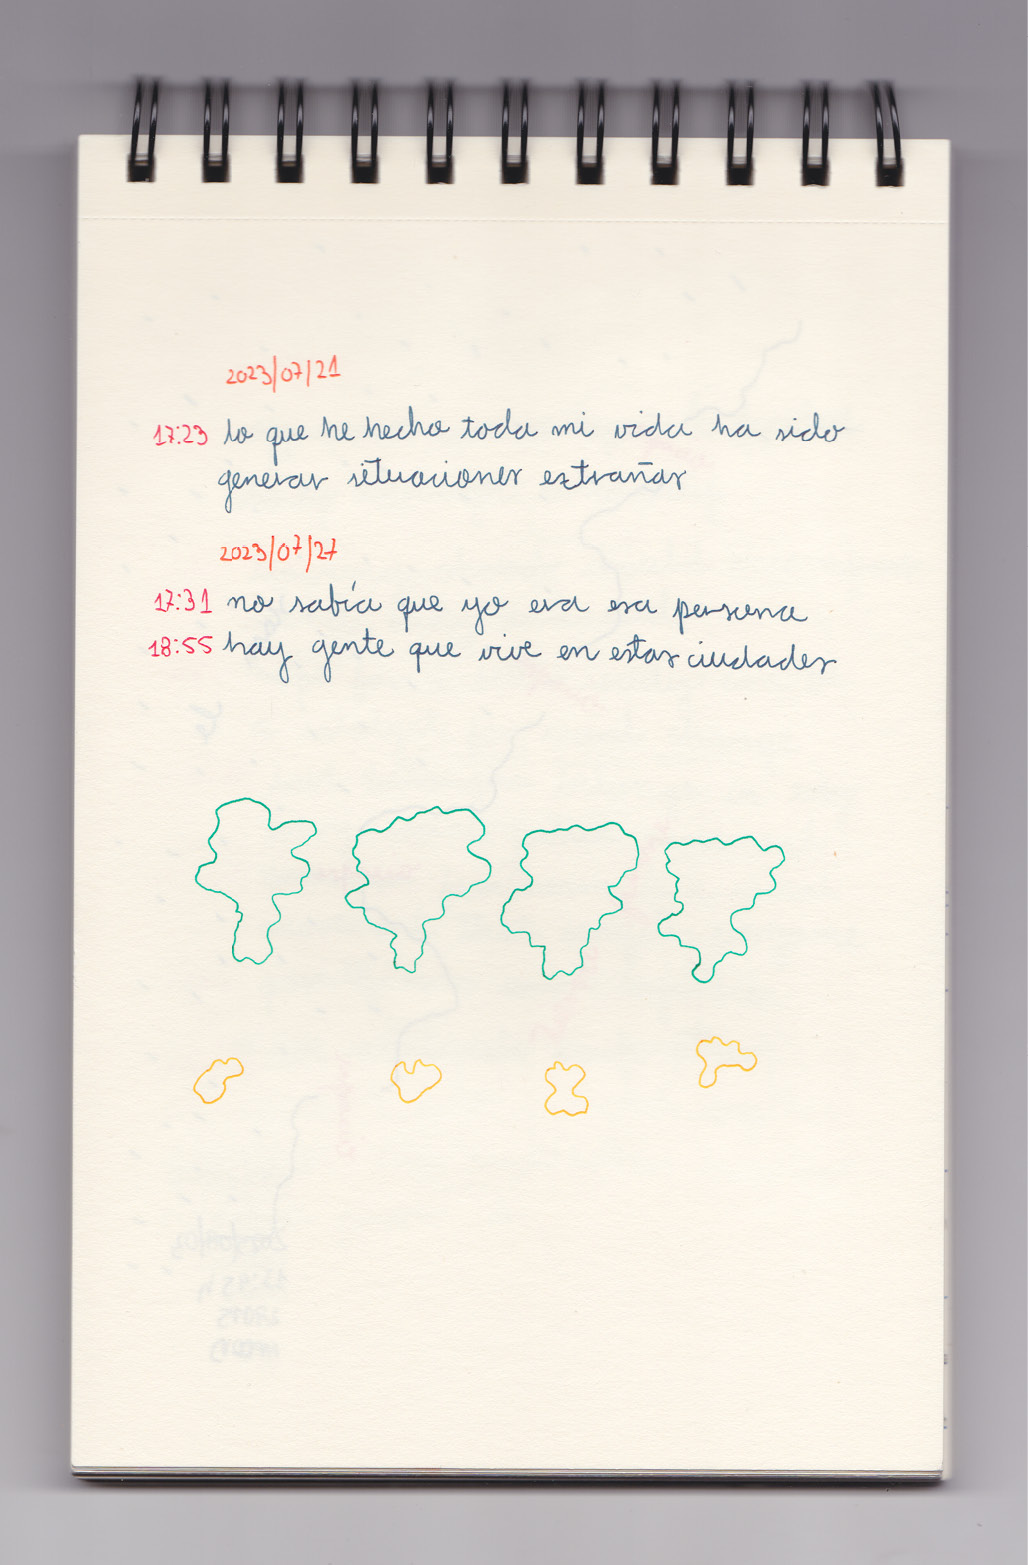 2023/07/21
17:23 lo que he hecho toda mi vida ha sido
generar situaciones extrañas
2023/07/27
17:31 no sabía que yo era esa persona
18:55 hay gente que vive en estas ciudades